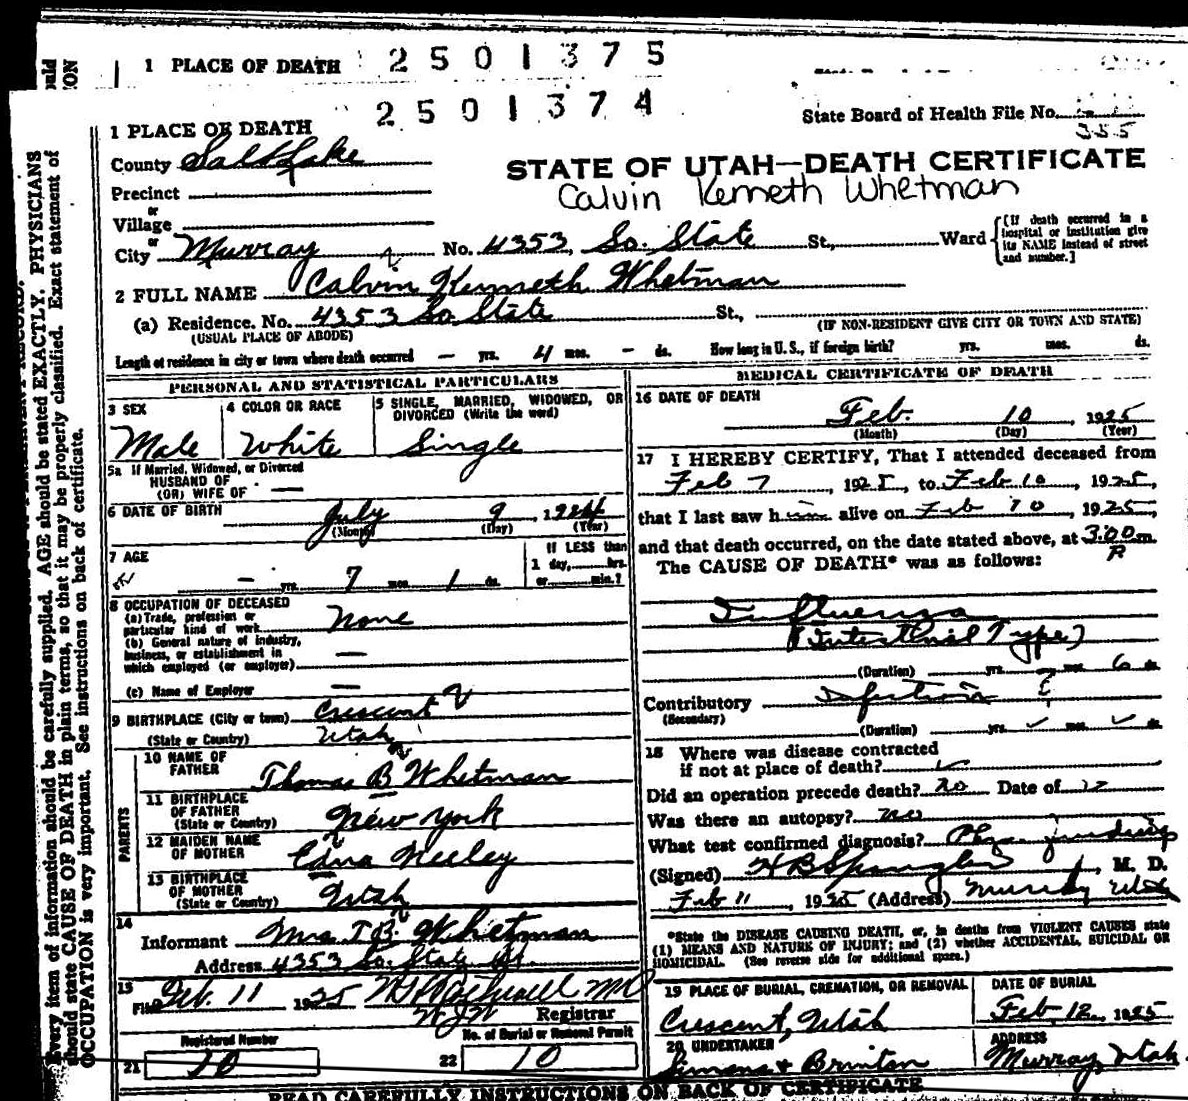 1 PLACE OF DEATH 2501375
2501374
State Board of Health File No.
355
1 PLACE OF DEATH
County Salt Lake
STATE OF UTAH—DEATH CERTIFICATE
Calvin Kenneth Whetman
Precinct
or
Village
or
City Murray No. 4353, So. State St., Ward
[If death occurred in a hospital or institution give its NAME instead of street and number.]
2 FULL NAME Calvin Kenneth Whetman
(a) Residence. No. 4353 So. State St.,
(USUAL PLACE OF ABODE) (IF NON-RESIDENT GIVE CITY OR TOWN AND STATE)
Length of residence in city or town where death occurred — yrs. 4 mos. — ds. How long in U.S., if foreign birth? yrs. mos. ds.
PERSONAL AND STATISTICAL PARTICULARS
3 SEX
Male
4 COLOR OR RACE
White
5 SINGLE, MARRIED, WIDOWED, OR
DIVORCED (Write the word)
Single
5a If Married, Widowed, or Divorced
HUSBAND OF
(OR) WIFE OF —
6 DATE OF BIRTH July 9, 1924
(Month) (Day) (Year)
7 AGE
— yrs. 7 mos. 1 ds.
If LESS than
1 day, hrs.
or min.?
8 OCCUPATION OF DECEASED
(a) Trade, profession or
particular kind of work None
(b) General nature of industry,
business, or establishment in
which employed (or employer) —
(c) Name of Employer —
9 BIRTHPLACE (City or town) Crescent
(State or Country) Utah
PARENTS
10 NAME OF
FATHER Thomas B Whetman
11 BIRTHPLACE
OF FATHER
(State or Country) New York
12 MAIDEN NAME
OF MOTHER Edna Neeley
13 BIRTHPLACE
OF MOTHER
(State or Country) Utah
14
Informant Mrs T B. Whetman
Address 4353 So. State St.
15
Filed Feb. 11 1925 MD
Registrar
Registered Number
21 10
No. of Burial or Removal Permit
22 10
MEDICAL CERTIFICATE OF DEATH
16 DATE OF DEATH
Feb. 10, 1925
(Month) (Day) (Year)
17 I HEREBY CERTIFY, That I attended deceased from
Feb 7, 1925, to Feb 10, 1925,
that I last saw him alive on Feb 10, 1925,
and that death occurred, on the date stated above, at 3:00 P m.
The CAUSE OF DEATH* was as follows:
Influenza
(Intestinal Type)
(Duration) yrs. mos. 6 ds.
Contributory
(Secondary)
(Duration) yrs. mos. ds.
18 Where was disease contracted
if not at place of death?
Did an operation precede death? no Date of
Was there an autopsy? no
What test confirmed diagnosis? Phys
(Signed) H B Spangler, M. D.
Feb 11, 1925 (Address) Murray Utah
*State the DISEASE CAUSING DEATH, or, in deaths from VIOLENT CAUSES state
(1) MEANS AND NATURE OF INJURY; and (2) whether ACCIDENTAL, SUICIDAL OR
HOMICIDAL. (See reverse side for additional space.)
19 PLACE OF BURIAL, CREMATION, OR REMOVAL
Crescent, Utah
DATE OF BURIAL
Feb. 12, 1925
20 UNDERTAKER
Brinton
ADDRESS
Murray, Utah
READ CAREFULLY INSTRUCTIONS ON BACK OF CERTIFICATE
Every item of information should be carefully supplied. AGE should be stated EXACTLY. PHYSICIANS
should state CAUSE OF DEATH in plain terms, so that it may be properly classified. Exact statement of
OCCUPATION is very important. See instructions on back of certificate.